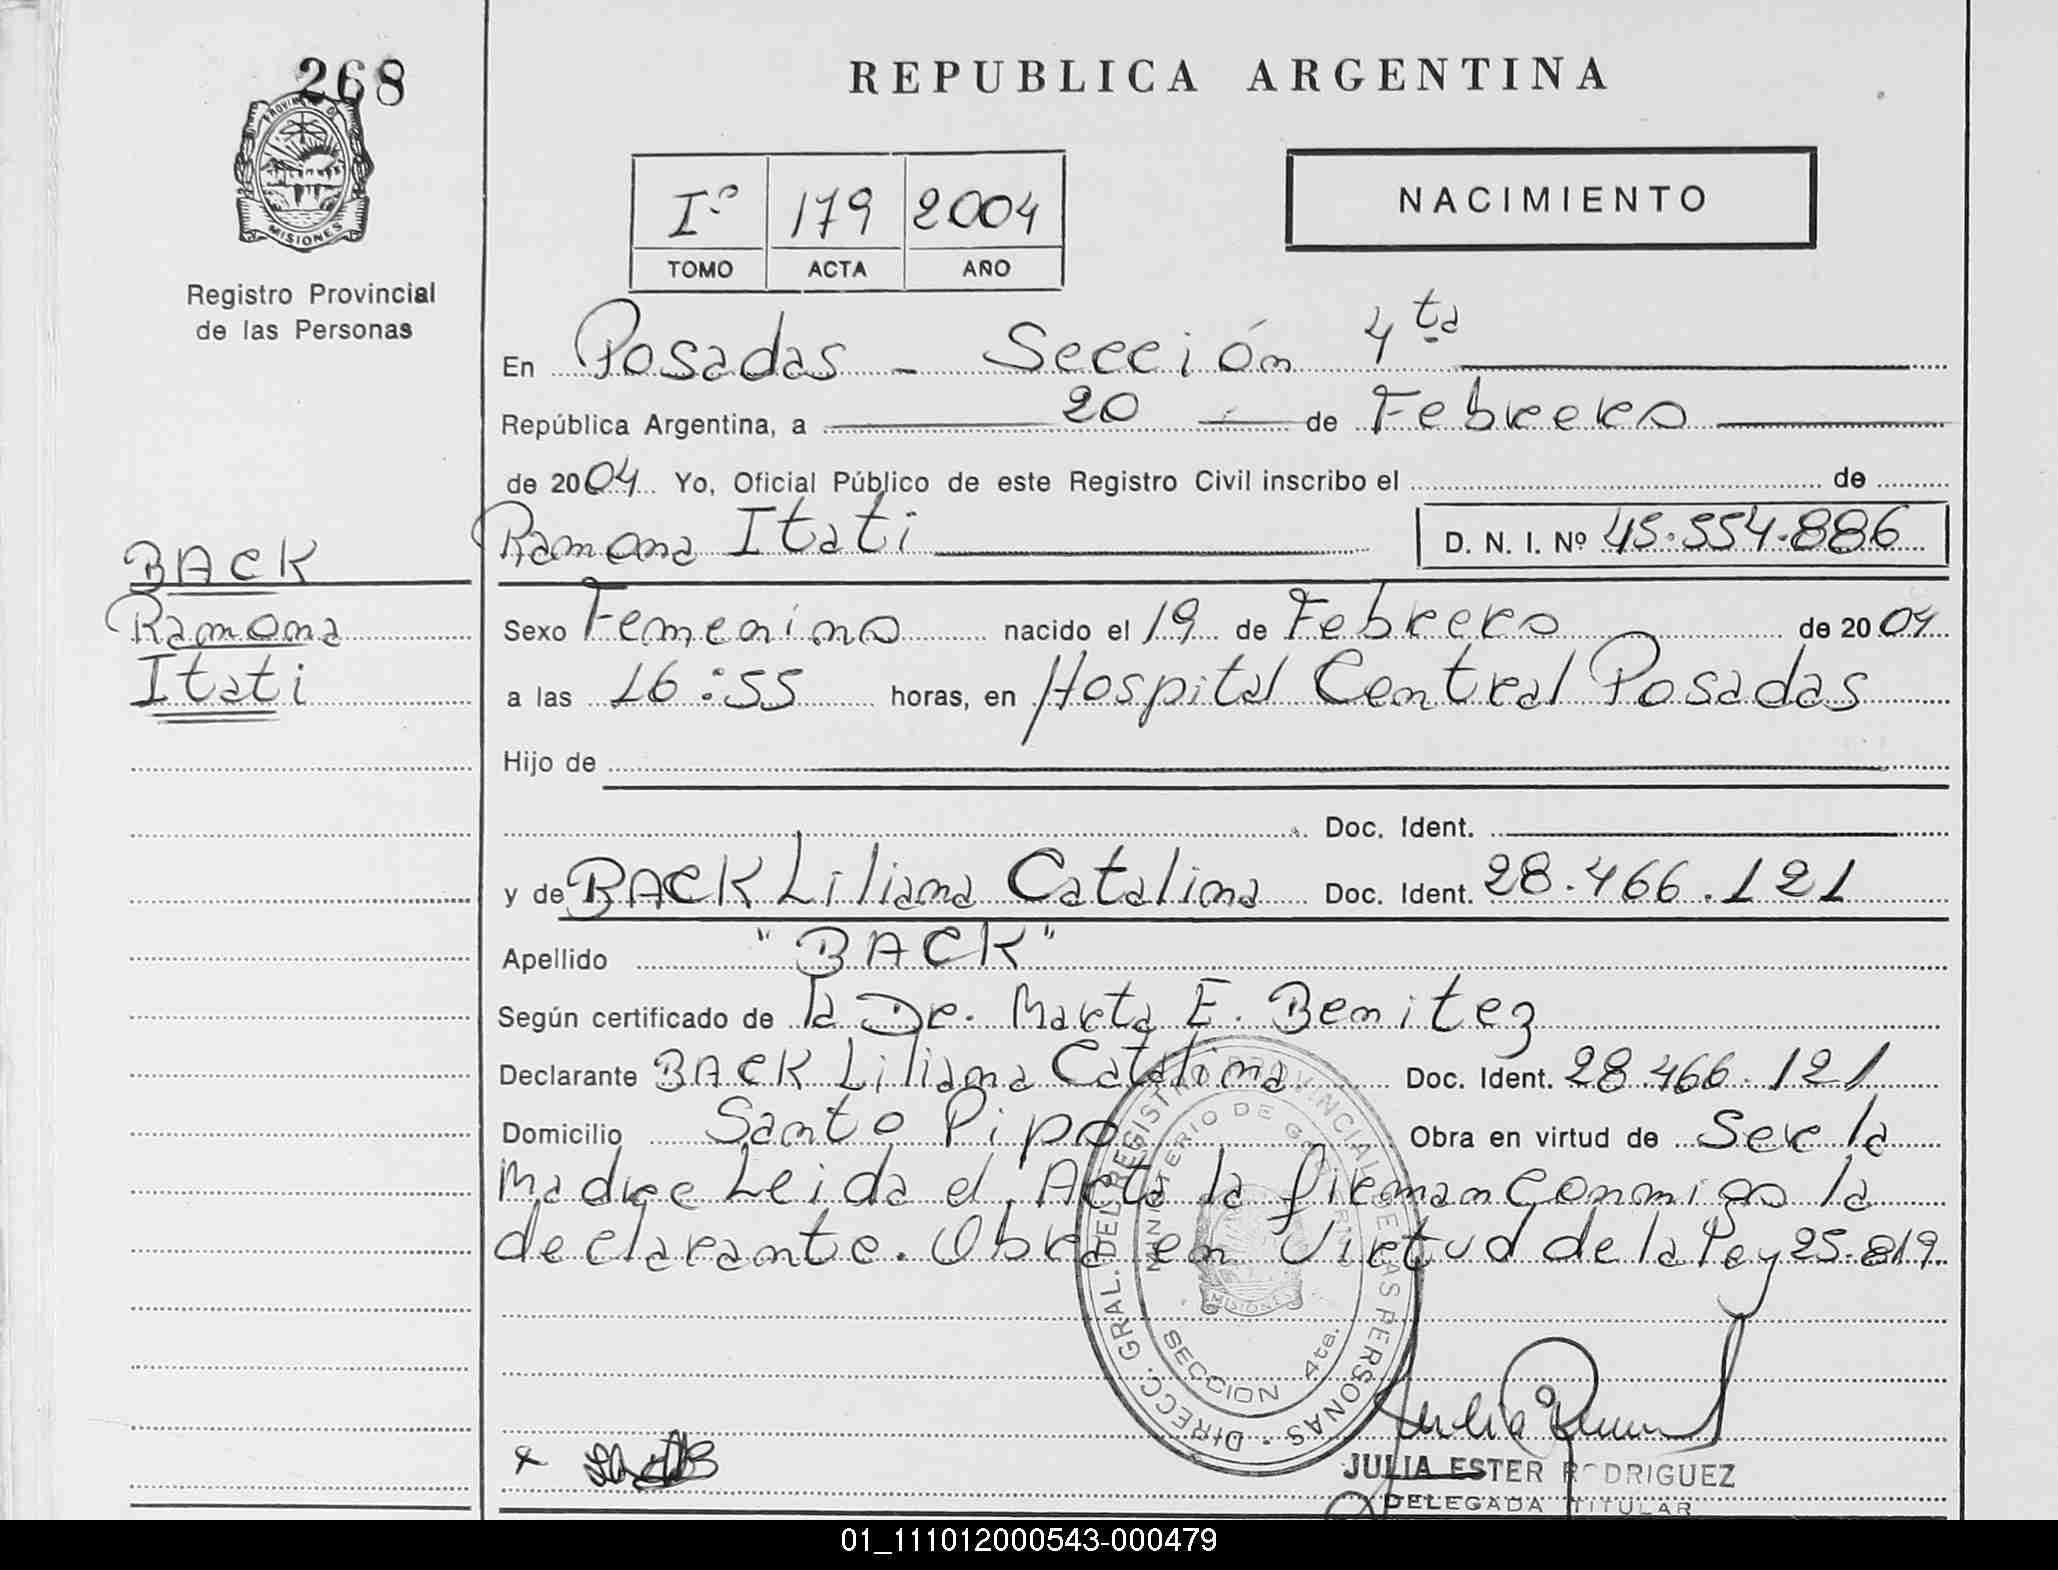 268
REPUBLICA ARGENTINA
PROVINCIA DE
MISIONES
Registro Provincial
de las Personas
Iº 179 2004
TOMO ACTA AÑO
NACIMIENTO
En Posadas - Sección 4ta
República Argentina, a 20 de Febrero
de 2004 Yo, Oficial Público de este Registro Civil inscribo el de
Ramona Itati D. N. I. Nº 45.554.886
BACK
Ramona
Itati
Sexo Femenino nacido el 19 de Febrero de 2004
a las 16:55 horas, en Hospital Central Posadas
Hijo de
Doc. Ident.
y de BACK Liliana Catalina Doc. Ident. 28.466.121
Apellido "BACK"
Según certificado de la Dr. Marta E. Benitez
Declarante BACK Liliana Catalina Doc. Ident. 28.466.121
Domicilio Santo Pipo Obra en virtud de Ser la
Madre Leida el Acta la firman conmigo la
declarante. Obra en Virtud de la Ley 25.819.
DIRECC. GRAL. DEL REGISTRO PROVINCIAL DE LAS PERSONAS
MINISTERIO DE GOBIERNO
MISIONES
SECCION 4ta.
JULIA ESTER RODRIGUEZ
DELEGADA TITULAR
01_111012000543-000479